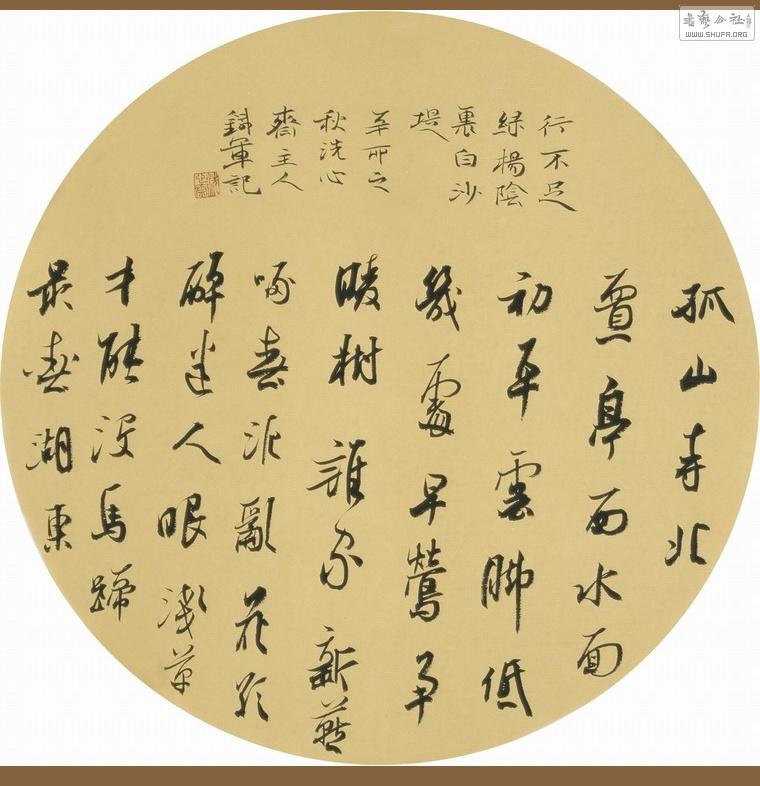 孤山寺北
賈亭西水面
初平雲脚低
幾處早鶯爭
暖樹誰家新燕
啄春泥亂花欲
醉迷人眼淺草
才能没馬蹄
最春湖東
行不足
緑楊陰
裏白沙
堤
辛卯之
秋洗心
齋主人
鑄軍記
書藝公社
WWW.SHUFA.ORG